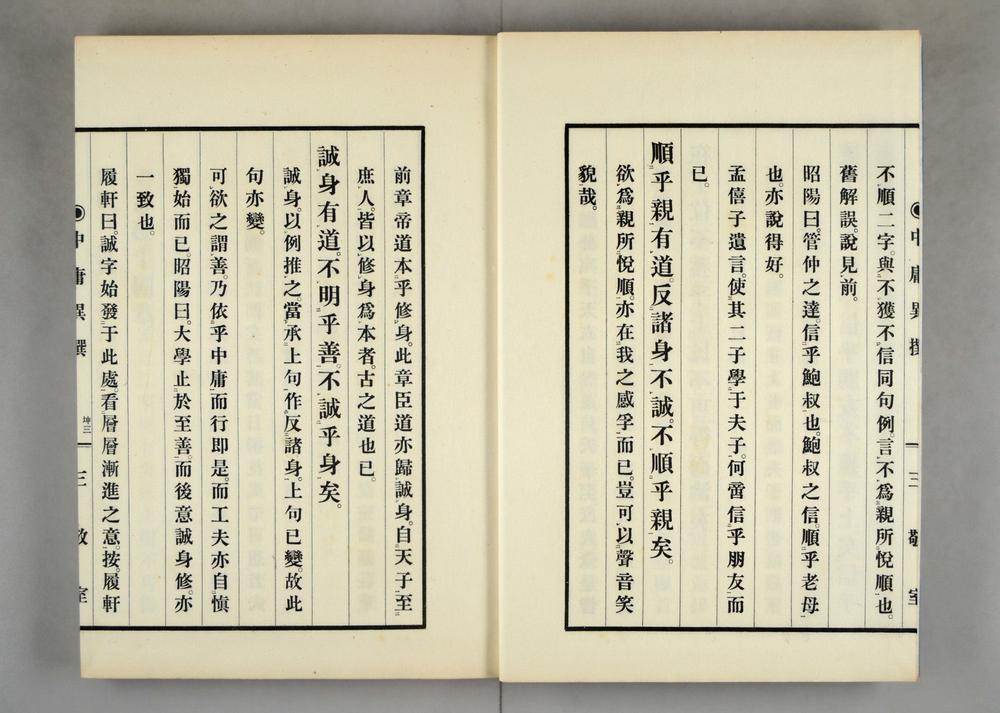 不順二字。與不獲不信同句例。言不爲親所悅順也。
舊解誤。說見前。
昭陽曰。管仲之達。信乎鮑叔也。鮑叔之信。順乎老母
也。亦說得好。
孟僖子遺言。使其二子學于夫子。何啻信乎朋友而
已。
順乎親有道。反諸身不誠。不順乎親矣。
欲爲親所悅順。亦在我之感孚而已。豈可以聲音笑
貌哉。
中庸異撰
三 敬室
前章帝道本乎修身。此章臣道亦歸誠身。自天子至
庶人。皆以修身爲本者。古之道也已。
誠身有道。不明乎善。不誠乎身矣。
誠身。以例推之。當承上句。作反諸身。上句已變。故此
句亦變。
可欲之謂善。乃依乎中庸而行卽是。而工夫亦自愼
獨始而已。昭陽曰。大學止於至善。而後意誠身修。亦
一致也。
履軒曰。誠字始發于此處。看層層漸進之意。按。履軒
中庸異撰 坤三 三 敬室